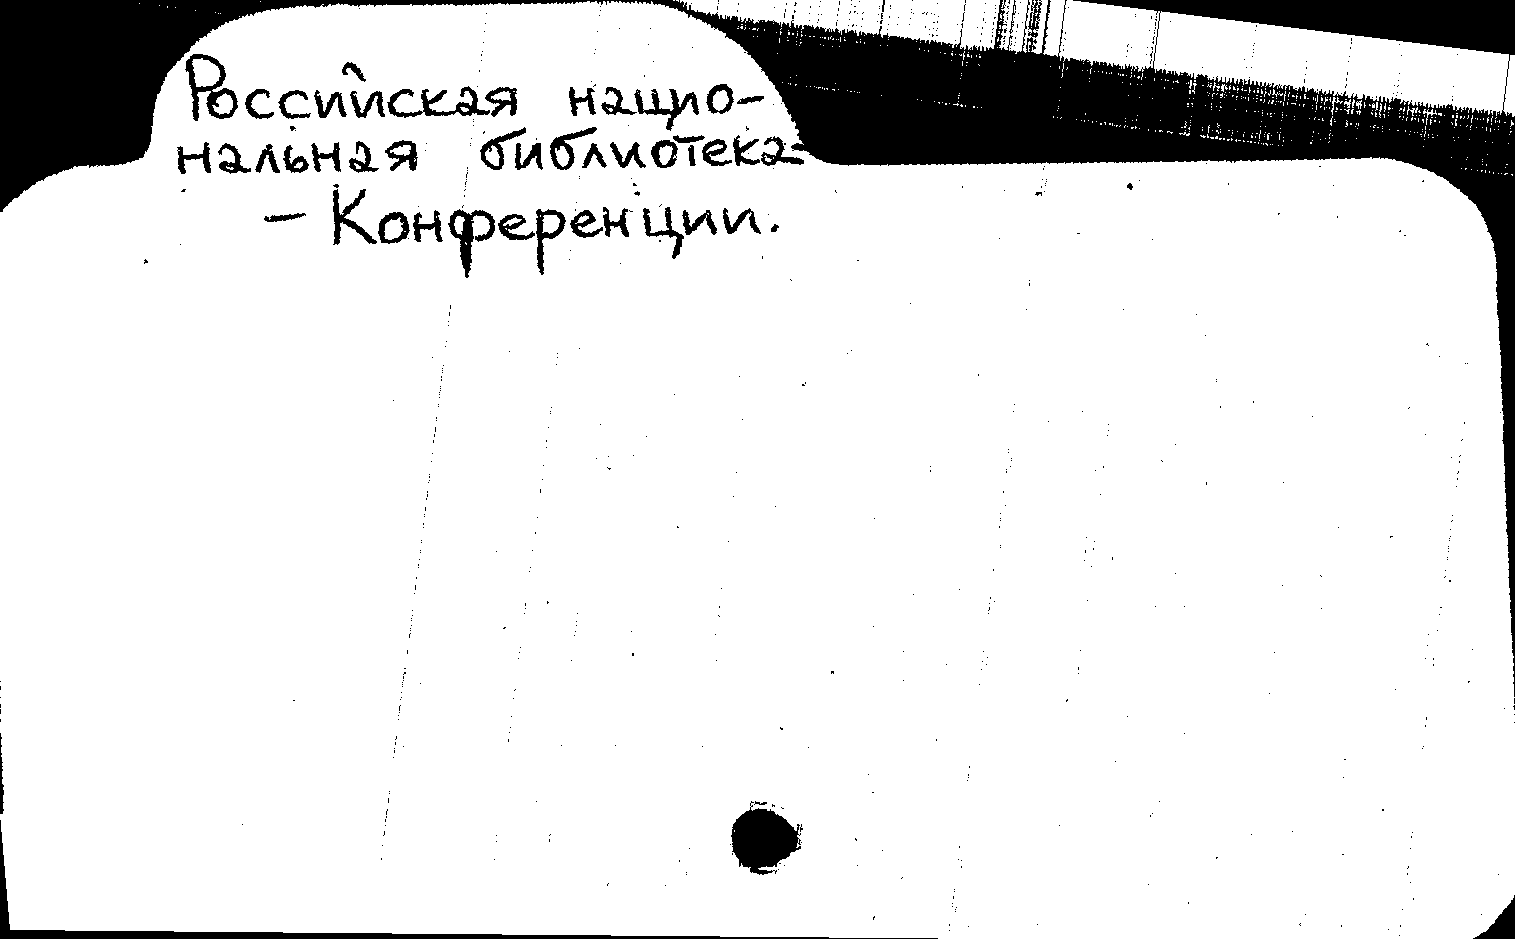 Российская нацио-
нальная библиотека-
- Конференции.